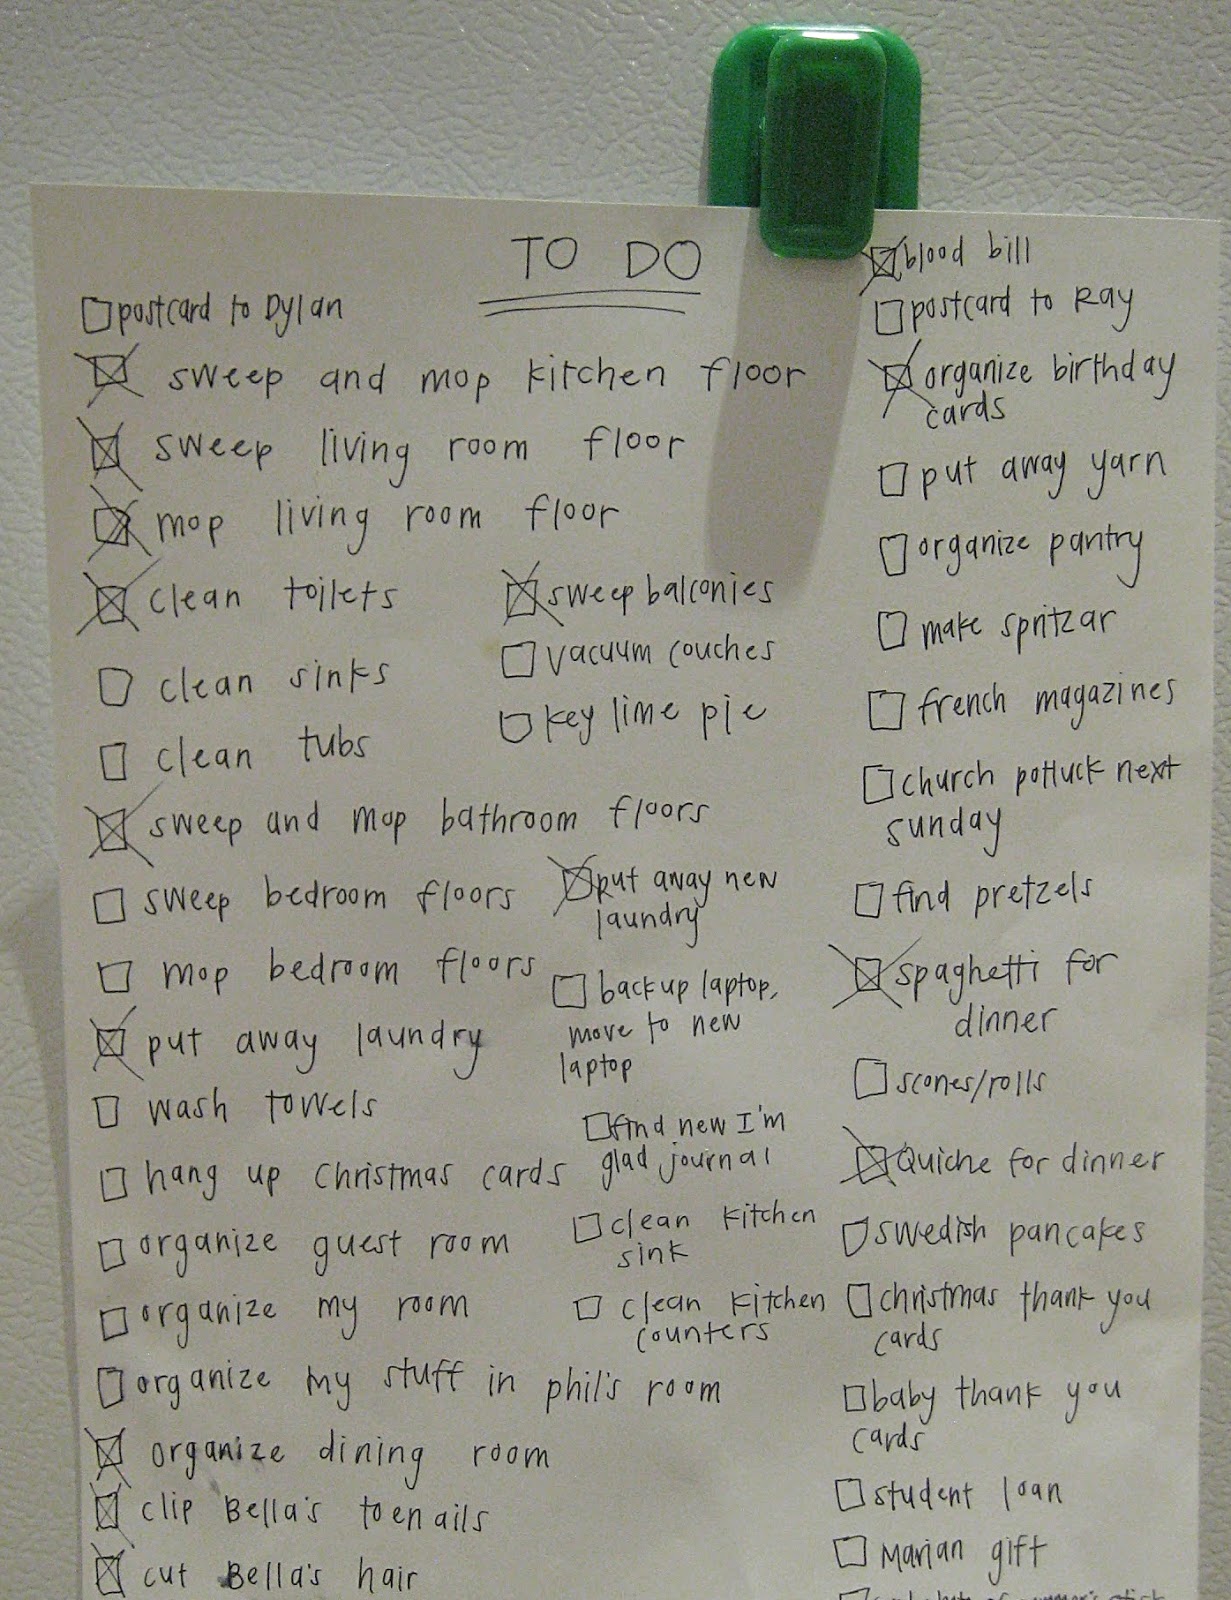 TO DO
postcard to Dylan
sweep and mop kitchen floor
sweep living room floor
mop living room floor
clean toilets
clean sinks
clean tubs
sweep and mop bathroom floors
sweep bedroom floors
mop bedroom floors
put away laundry
wash towels
hang up christmas cards
organize guest room
organize my room
organize my stuff in phil's room
organize dining room
clip Bella's toenails
cut Bella's hair
sweep balconies
vacuum couches
key lime pie
put away new
laundry
backup laptop,
move to new
laptop
find new I'm
glad journal
clean kitchen
sink
clean kitchen
counters
blood bill
postcard to Ray
organize birthday
cards
put away yarn
organize pantry
make spritzar
french magazines
church potluck next
sunday
find pretzels
spaghetti for
dinner
scones/rolls
Quiche for dinner
swedish pancakes
christmas thank you
cards
baby thank you
cards
student loan
Marian gift